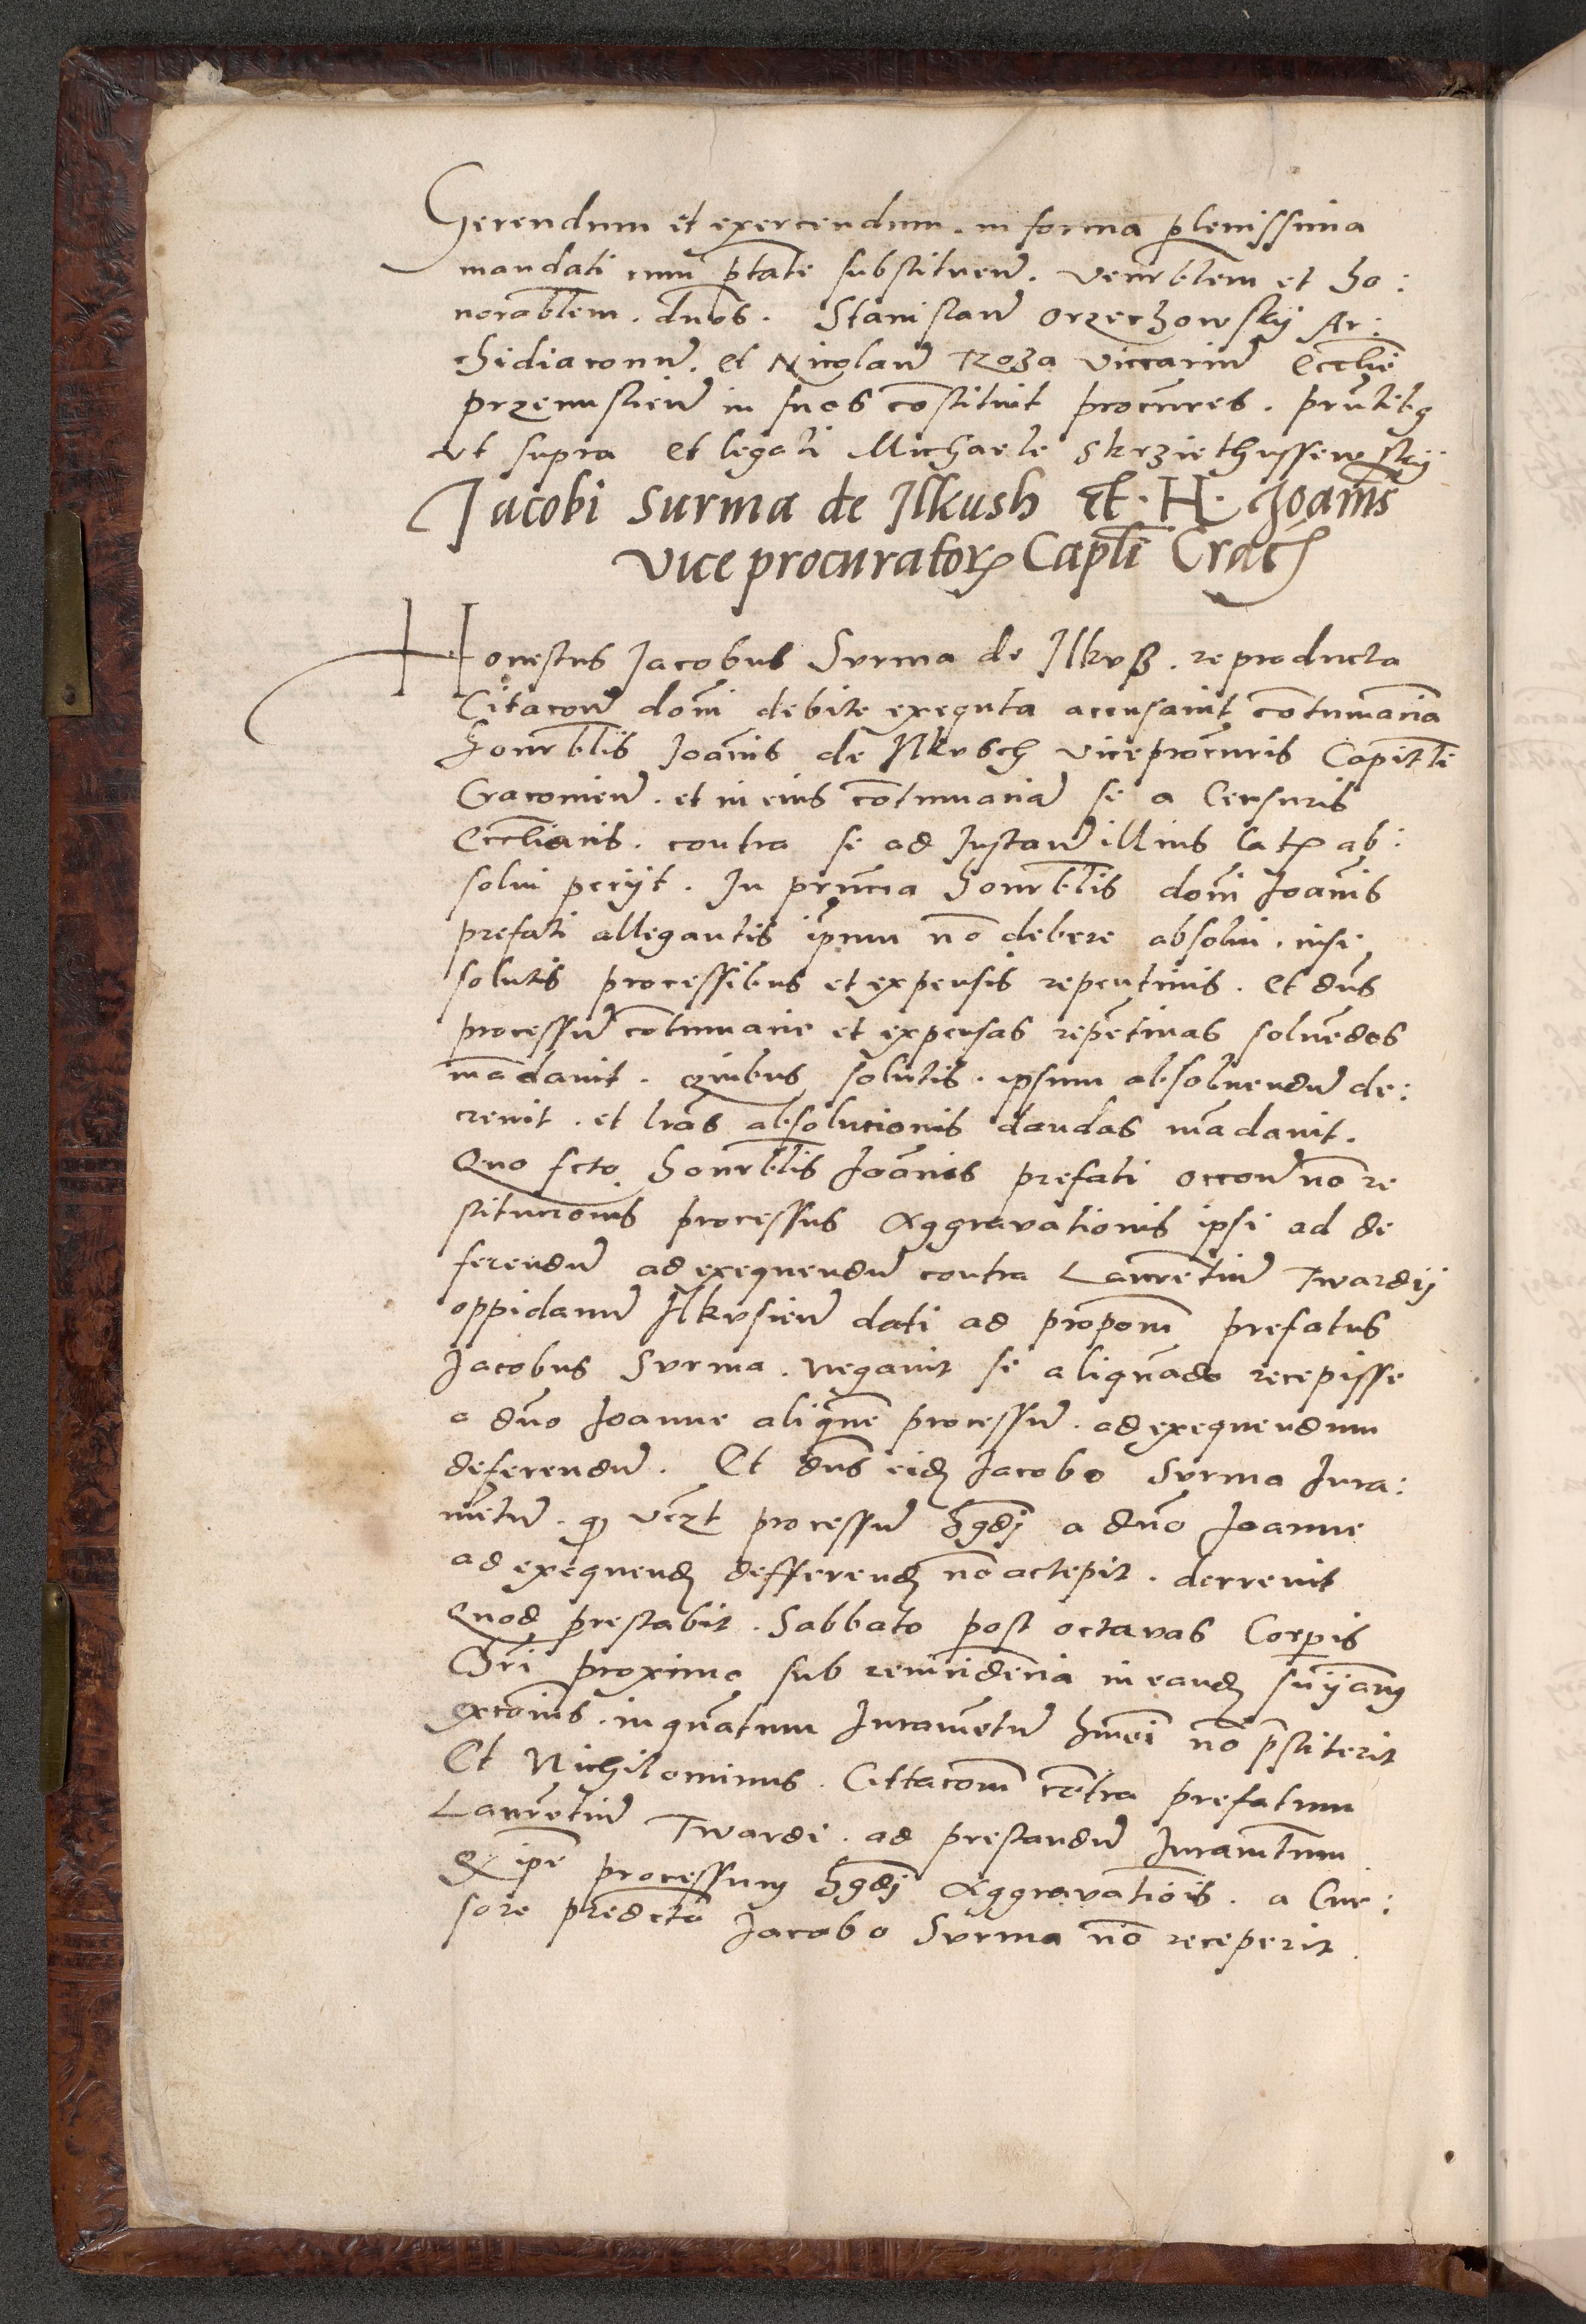 Gerendum et exercendum. in forma plenissima
mandati cum ptate substituen̄. venerblem et ho:
norablem. dnos. Stanislaū Orzechowskij Ar:
chidiaconū. et Nicolaū Roza viccariū Eccliē
przemislien̄ in suos constituit procures. pntibus
ut supra et legati Michaele Skrziethussewskij
Jacobi Surma de Ilkush et. H. Joannis
vice procuratoris Capli Crac
Honestus Jacobus Surma de Ilkuß. reproducta
Citacōn̄ domi debite exequta accusavit contumaciā
honrblis Joānis de Ilkusch viceprocuris Capitli
Cracovien̄. et in eius contumaciā se a Censuris
Eccliacis. contra se ad Instan̄ illius latis ab:
solui peciit. In pn̄cia honrblis domi Joānis
prefati allegantis ipsum nō debere absolui. nisi
solutis processibus et expensis repentinis. Et dn̄s
processū contumacie et expensas repētinas soluēdos
mādavit. Quibus solutis. ipsum absoluendū de:
crevit. et lrās absolucionis dandas mādavit.
Quo fcto honrblis Joānis prefati occon̄ nō re
stitucionis processus Aggravationis ipsi ad de
ferendū ad exequendū contra Laurētiū Twardij
oppidanū Ilkusien̄ dati ad propom̄ prefatus
Jacobus Surma. Negavit se aliquādo recepisse
a dn̄o Joanne aliquē processū. ad exequendum
deferendū. Et dn̄s eidē Jacobo Surma Jura:
mētū. processū hgdi a dn̄o Joanne
ad exequend defferend nō accepit. decrevit
Quod prestabit. Sabbato post octavas Corpis
Chri proximo sub reincidēcia in eand sn̄iam
exconis. inquātum Juramētū hmōi nō pstiterit
Et Nichilominus. Cittacōm cōtra prefatum
Laurētiū Twardi. ad prestandū Juramtum
Q ipē processum hgdi Aggravatiōis. a Cur:
sore predcto Jacobo Surma nō receperit